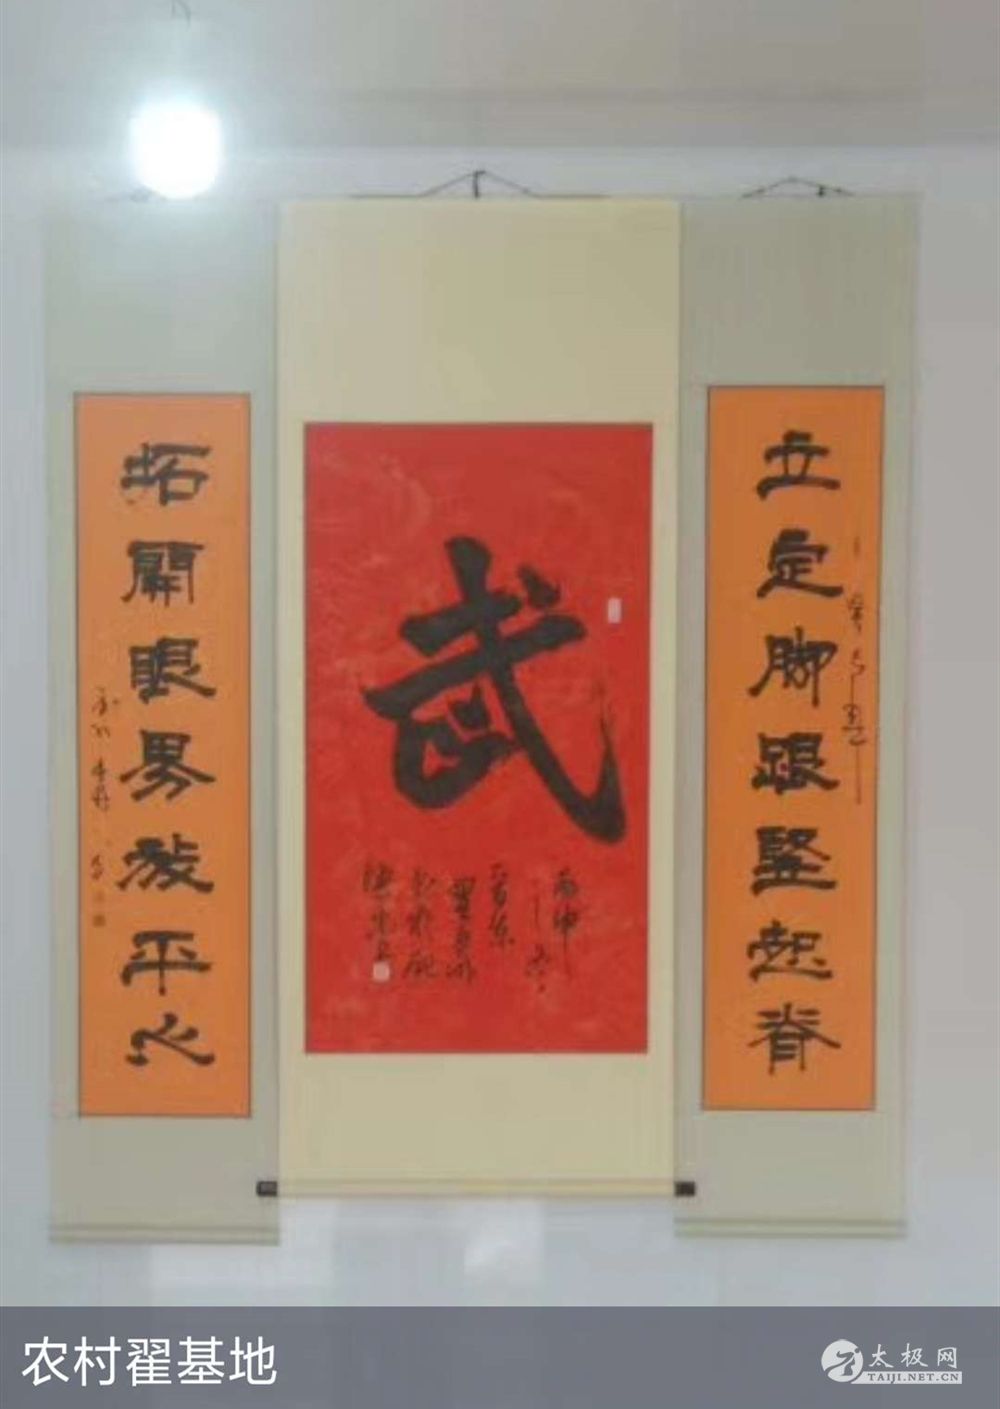 立定脚跟竖起脊
武
丙申
拓開眼界放平心
农村翟基地
太极网
TAIJI.NET.CN